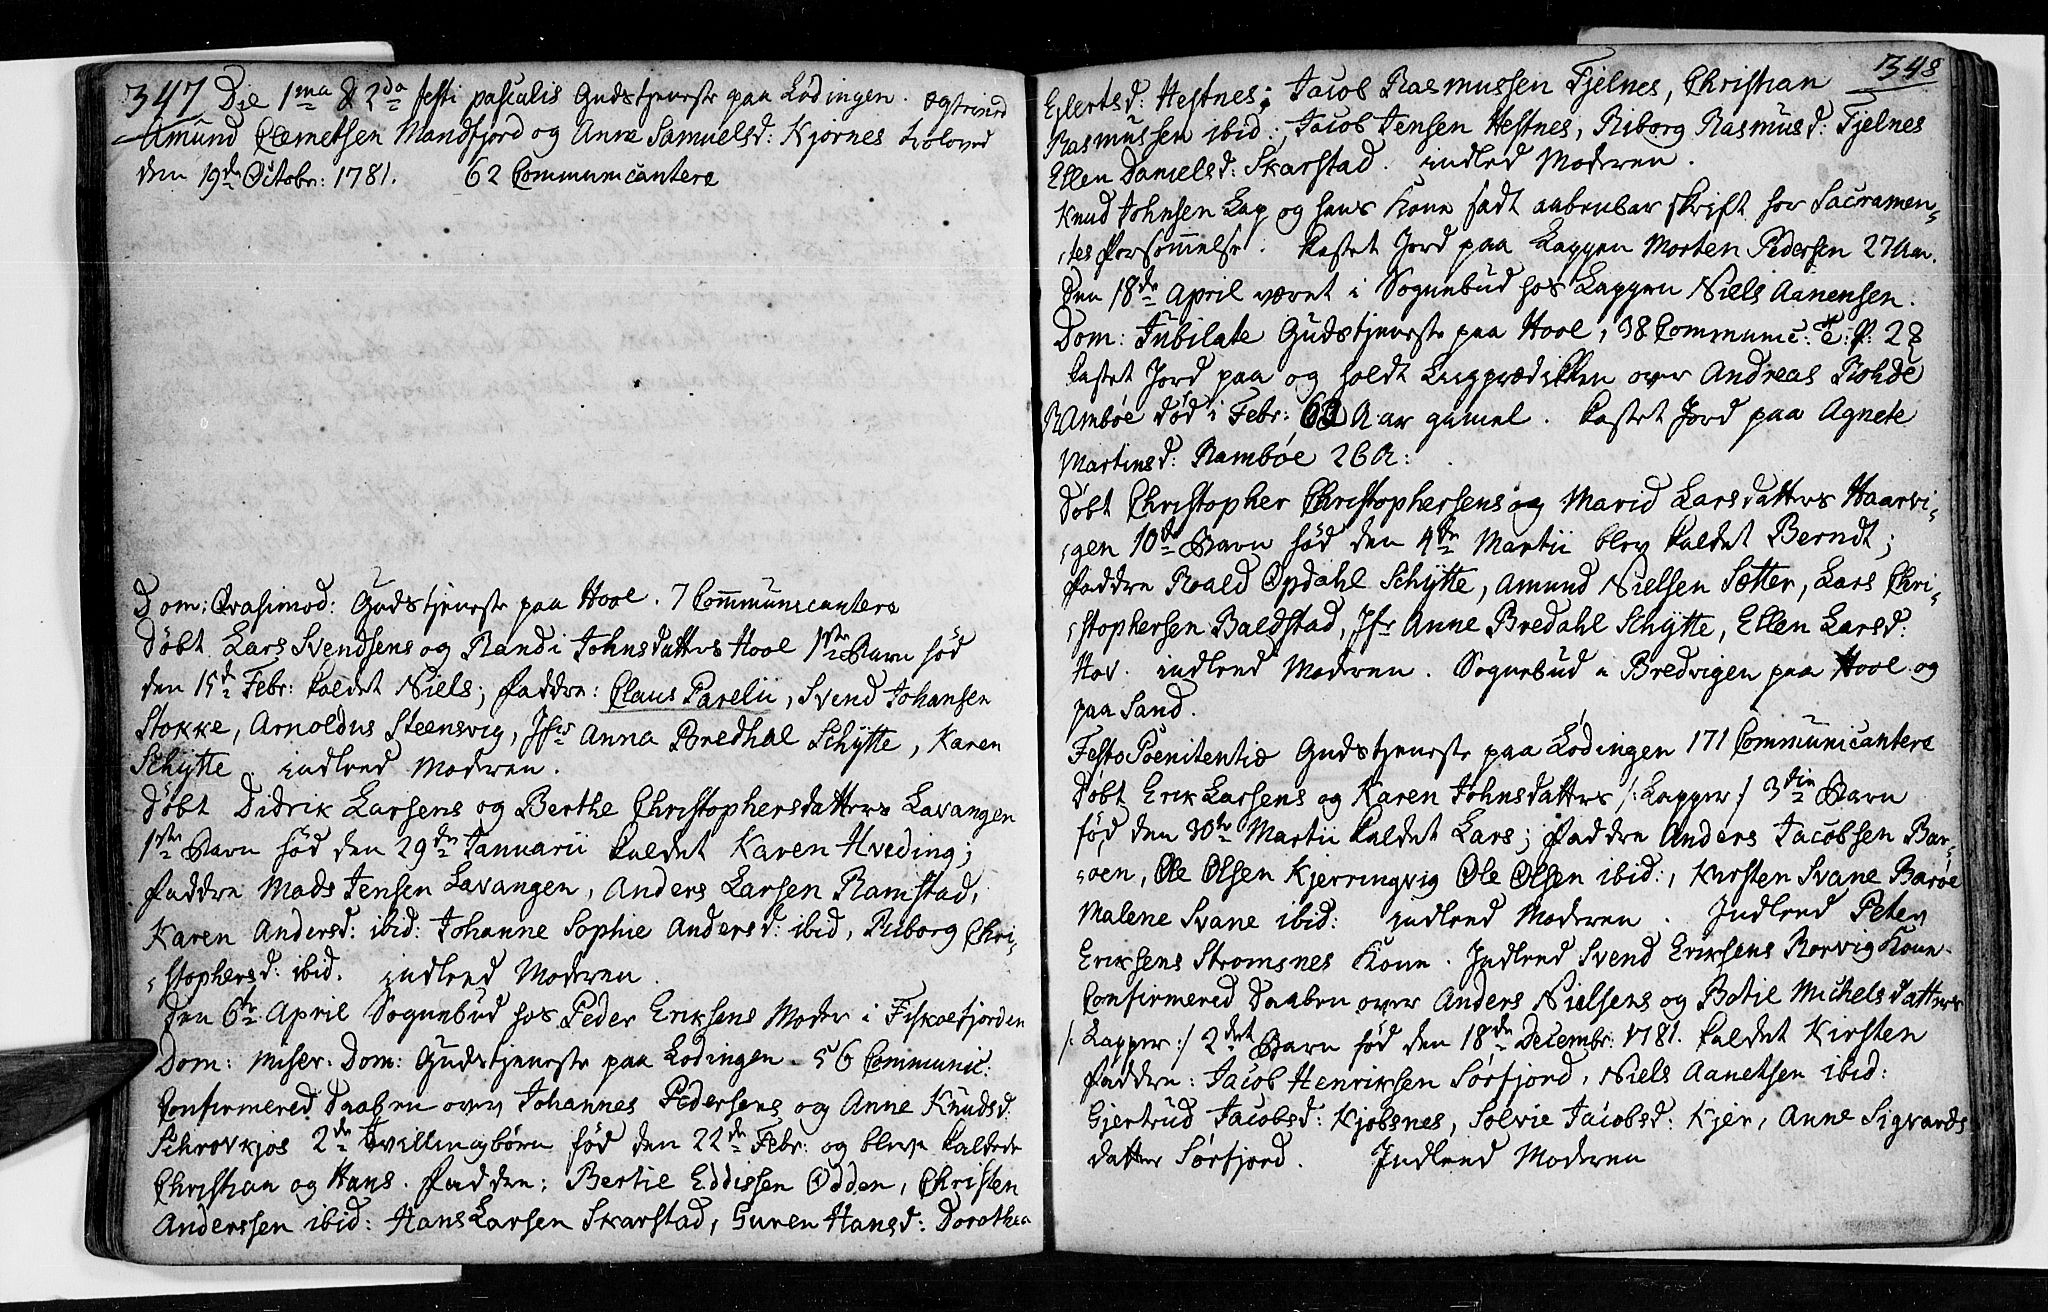 347 Die 1ma & 2da festi paschalis Gudstjeneste paa Lödingen.
Amund Clemetsen Mandfjord og Anne Samuelsd: Kjörnes troloved
den 19de Octobr: 1781. 62 Communicantere
Dom: Qvasimod: Gudstjeneste paa Hool. 7 Communicantere
Döbt Lars Svendsens og Randi Johnsdatters Hool 1ste Barn föd
den 15de Febr: kaldet Niels; Faddre: Claus Parelii, Svend Johansen
Stokke, Arnoldus Steensvig, Jfr Anna Bredhal Schytte, Karen
Schytte. indleed Moderen.
Döbt Didrik Larsens og Berthe Christophersdatters Lavangen
1ste Barn föd den 29de Januarii kaldet Karen Hveding;
Faddre Mads Jensen Lavangen, Anders Larsen Ramstad,
Karen Andersd: ibid: Johanne Sophie Andersd: ibid, Riborg Chri-
-stophersd: ibid. indleed Moderen.
Den 6te April Sognebud hos Peder Eriksens Moder i Fiskoefjorden
Dom: Miser. Dom: Gudstjeneste paa Lodingen. 56 Communic:
Confirmered Daaben over Johannes Pedersens og Anne Knudsd.
Schrovkjos 2de Tvillingbörn föd den 22de Febr: og bleve kaldede
Christian og Hans. Faddre: Bertil Eddissen Odden, Christen
Anderssen ibid: Hans Larsen Skarstad, Guren Hansd: Dorothea
348
Ejlertsd: Hestnes; Jacob Rasmussen Fjelnes, Christian
Rasmussen ibid: Jacob Jensen Hestnes, Riborg Rasmusd: Fjelnes
Ellen Danielsd: Skarstad. indled Moderen.
Knud Johnsen Lap og hans Kone stadt aabenbar skrift for Sacramen-
-tes Forsömmelse. Kastet Jord paa Lappen Morten Pedersen 27 Aar.
Den 18de April været i Sognebud hos Lappen Niels Aanensen.
Dom: Jubilate Gudstjeneste paa Hool, 38 Communic:
Kastet Jord paa og holdt Liigprædikken over Andreas Rohde
Ramböe död i Febr: Aar gamel. Kastet Jord paa Agnete
Martinsd: Ramböe 26 A:
Döbt Christopher Christophersens og Marid Larsdatters Haarvi-
-gen 10de Barn föd den 4de Martii blev kaldet Berndt;
Faddre Roald Opdahl Schytte, Amund Nielsen Sætter, Lars Chri-
-stophersen Baldstad, Jfr Anne Bredahl Schytte, Ellen Larsd:
Hov. indleed Moderen. Sognebud i Bredvigen paa Hool og
paa Sand.
Festo Poenitentiæ Gudstjeneste paa Lödingen 171 Communicantere
Döbt Erik Larsens og Karen Johnsdatters /: Lapper :/ 3die Barn
föd, den 30te Martii kaldet Lars; Faddre Anders Jacobsen Bar-
-öen, Ole Olsen Kjerringvig Ole Olsen ibid:, Kirsten Svane Baröe
Malene Svane ibid: indleed Moderen. Indleed Peter
Eriksens Stromsnes Kone. Indleed Svend Eriksens Rorvig Kone.
Confirmered Daaben over Anders Nielsens og Botil Michelsdatters
/: Lapper :/ 2det Barn föd den 18de Decembr: 1781. kaldet Kirsten
Faddre: Jacob Henriksen Sörfjord, Niels Aanetsen ibid:
Gjertrud Jacobsd: Kjöbsnes, Solvie Jacobsd: Kjer, Anne Sigvards
datter Sörfjord. Indleed Moderen